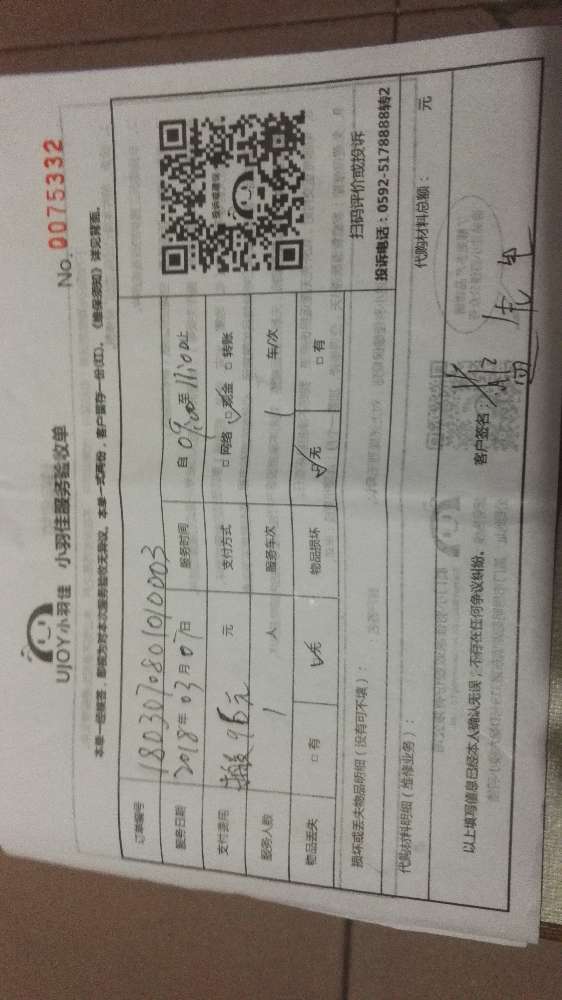 UJOY小羽佳 小羽佳服务验收单
No. 0075332
本单一经签名,即视为对本次服务验收无异议。本单一式两份,客户留存一份(红)。《维保须知》详见背面。
订单编号 180307080101010003
服务日期 2018年03月07日 服务时间 自 09:00至11:00止
支付费用 元 支付方式 □网络 □现金 □转账
服务人数 1 人 服务车次 1 车/次
物品丢失 □有 □无 物品损坏 □无 □有
投诉或建议
扫码评价或投诉
投诉电话:0592-5178888转2
损坏或丢失物品明细(没有可不填):
代购材料明细(维修业务): 代购材料总额: 元
以上填写信息已经本人确认无误,不存在任何争议纠纷。 客户签名: